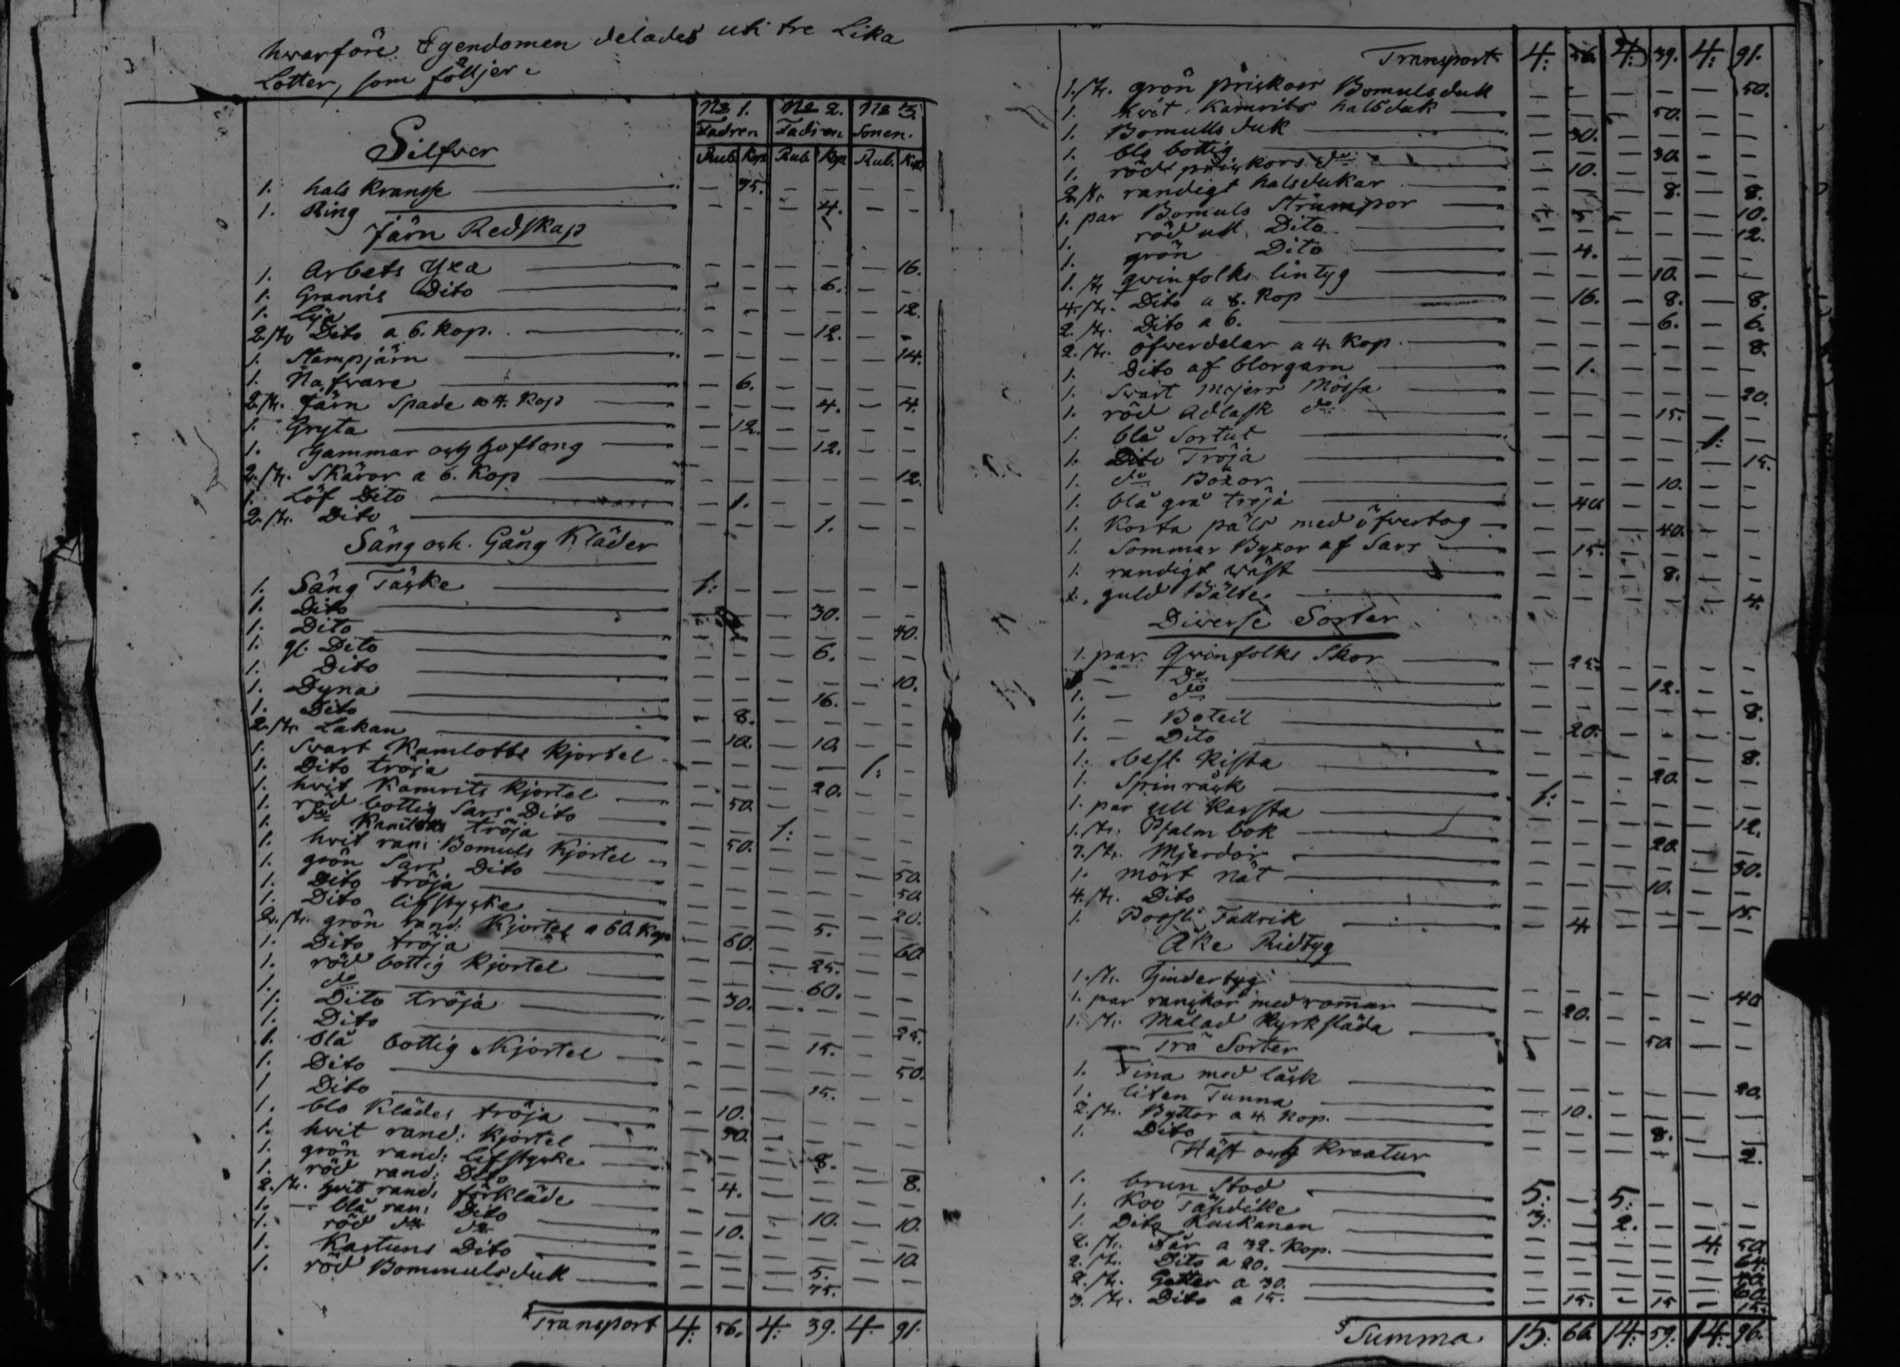 hvarföre Egendomen delades uti tre Lika
Lotter, som följer:
No 1. No 2. No 3.
Fadren Fadren Sonen.
Silfver Rub. Kop. Rub. Kop. Rub. Kop.
1. hals kransse — 75. — — — —
1. Ring — — — 4. — —
Järn Redskap
1. Arbets Yxa — — — — — 16.
1. Granris Dito — — — 6. — —
1. Lija — — — — — 12.
2. st. Dito a 6. Kop. — — — 12. — —
1. Stampjärn — — — — — 14.
1. Nafvare — 6. — — — —
2. st. Järn Spade a 4. Kop — — — 4. — 4.
1. Gryta — 12. — — — —
1. Hammar och Hoftong — — — 12. — —
2. st. Skäror a 6. Kop — — — — — 12.
1. Löf Dito — 1. — — — —
2. st. Dito — — — 1. — —
Säng och Gång Kläder
1. Säng Täcke 1: — — — — —
1. Dito — — — 30. — —
1. Dito — — — — — 40.
1. gl. Dito — — — 6. — —
1. Dito — — — — — 10.
1. Dyna — — — 16. — —
1. Dito — 8. — — — —
2. st. Lakan — 10. — 10. — —
1. Svart Kamlotts Kjortel — — — — 1: —
1. Dito tröja — — — 20. — —
1. hvit Kamrits Kjortel — 50. — — — —
1. röd bottig Sars Dito
1. do Kamlots tröja — — 1: — — —
1. hvit ran: Bomuls Kjortel — 50. — — — —
1. grön Sars Dito — — — — — 50.
1. Dito tröja — — — — — 50.
1. Dito lifstycke — — — — — 20.
2. st. grön rand: Kjortel a 60. Kop — 60. — 5. — 60.
1. Dito tröja — — — 25. — —
1. röd bottig Kjortel — — — 60. — —
1. do — 30. — — — —
1. Dito tröja
1. Dito — — — — — 25.
1. blå bottig Kjortel — — — 15. — —
1. Dito — — — — — 50.
1. Dito — — — 15. — —
1. blå Klädes tröja — 10. — — — —
1. hvit rand: Kjortel — 30. — — — —
1. grön rand: Lifstycke — — — 8. — —
1. röd rand: Dito — — — — — 8.
2. st. hvit rand: förkläde — 4. — — — —
1. — blå ran: Dito — — — 10. — 10.
1. röd do do — 10. — — — —
1. Kartuns Dito — — — — — 10.
1. röd Bommulsduk — — — 5. — —
— — — 75. — —
Transport 4: 56. 4: 39. 4: 91.
Transport 4: 56. 4: 39. 4: 91.
1. st. grön Bomulsduk — — — — — 50.
1. hvit Kamrits halsduk — — — 50. — —
1. Bomulls duk — 30. — — — —
1. blå bottig — — — 30. — —
1. röd do — 10. — — — —
2. st. randigt halsdukar — — — 8. — 8.
1. par Bomuls Strumpor — — — — — 10.
1. röd ull. Dito — — — — — 12.
1. grön Dito — 4. — — — —
1. st. qvinfolks lintyg — — — 10. — —
4. st. Dito a 8. Kop — 16. — 8. — 8.
2. st. Dito a 6. — — — 6. — 6.
2. st. öfverdelar a 4. Kop — — — — — 8.
1. Dito af blorgarn — 1. — — — —
1. Svart Mössa — — — — — 20.
1. röd Adlask do — — — 15. — —
1. blå Sortut — — — — 1: —
1. Dito Tröja — — — — — 15.
1. do Böxor — — — 10. — —
1. blå grå tröja — 40. — — — —
1. Korta päls med öfvertog — — — 40. — —
1. Sommar Byxor af Sars — 15. — — — —
1. randigt väst — — — 8. — —
2. guld Bälte — — — — — 4.
Diverse Sorter
1. par Qvinfolks Skor — 25. — — — —
1. — Do — — — 12. — —
1. — do — — — — — 8.
1. — Boteil — 20. — — — —
1. — Dito — — — — — 8.
1. besl. Kista — — — 20. — —
1. Spinråck 1: — — — — —
1. par ull Karsta — — — — — 12.
1. st. Psalm bok — — — 20. — —
7. st. Mjerdor — — — — — 30.
1. Mört Nät — — — 10. — —
4. st. Dito — — — — — 15.
1. Posli Tallrik — 4. — — — —
Åke Ridtyg
1. st. Hindertyg — — — — — 40.
1. par ranckor med rommar — 20. — — — —
1. st. Målad Kyrksläda — — — 50. — —
Trä Sorter
1. Tina med låck — — — — — 20.
1. liten Tunna — 10. — — — —
2. st. Byttor a 4. Kop. — — — 8. — —
1. Dito — — — — — 2.
Häst och Kreatur
1. brun Stod 5: — 5: — — —
1. Koo Tähdike 3: — 2. — — —
1. Dito Kuckanen — — — — 4: 50.
2. st. Får a 32. Kop. — — — — — 64.
2. st. Dito a 20. — — — — — 40.
2. st. Getter a 30. — — — — — 60.
3. st. Dito a 15. — 15. — 15. — 15.
Summa 15: 66. 14: 59. 14: 96.